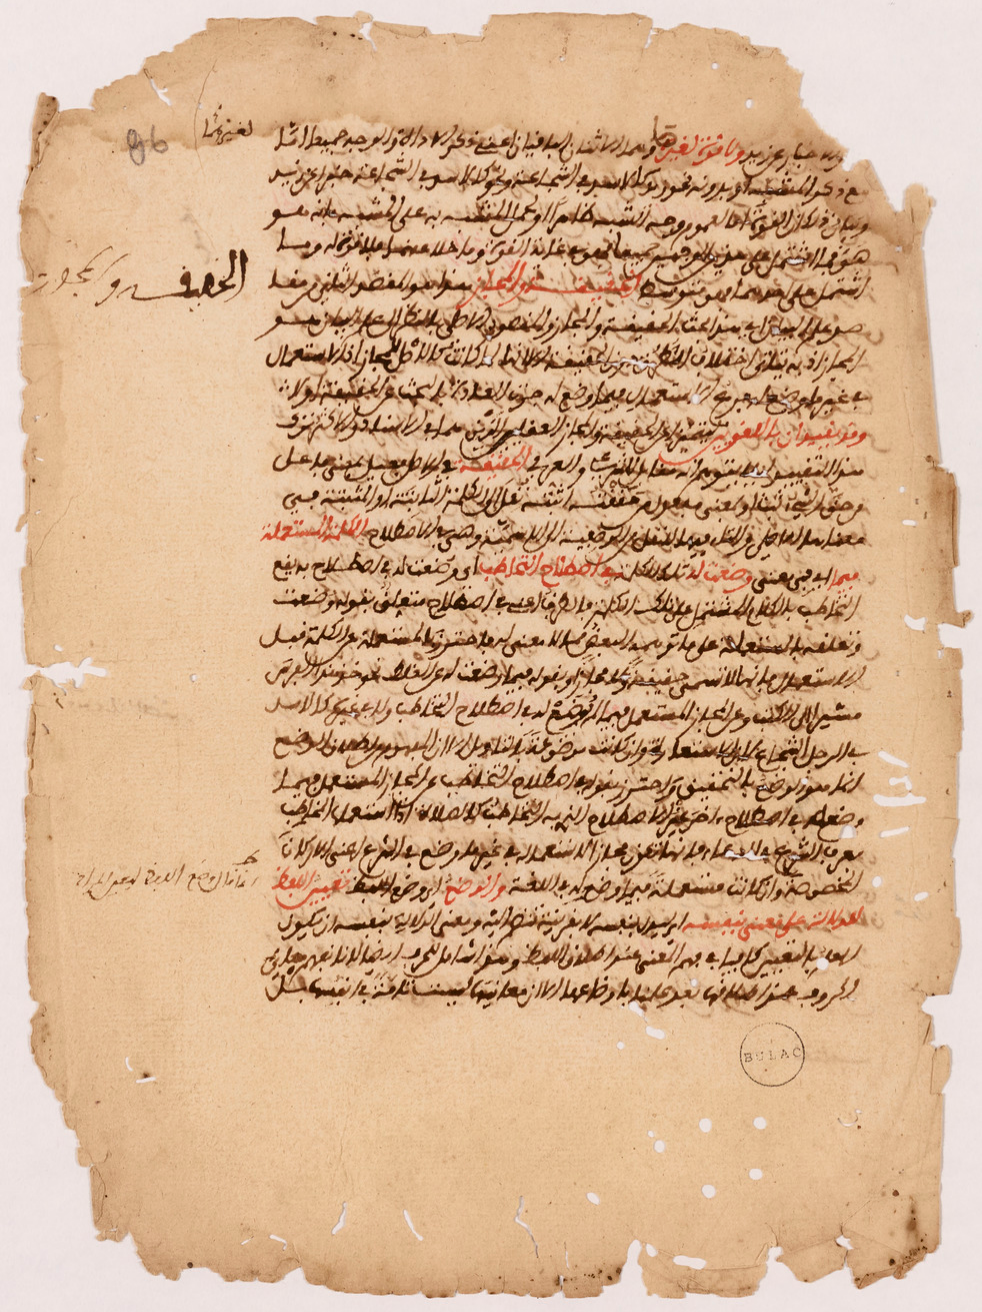 خبرا عن زيد ولا قوة لغيرهما وهما الاثنان الباقيان اعني ذكر الاداة والوجه جميعا اما
مع ذكر المشبه او بدونه نحو زيد كالاسد في الشجاعة ونحو كالاسد في الشجاعة خبرا عن زيد
وبيان ذلك ان القوة اما لعموم وجه الشبه ظاهرا او لحمل المشبه به على المشبه بانه هو
هو فما اشتمل على الوجهين جميعا فهو في غاية القوة وما خلا عنهما فلا قوة له وما
اشتمل على احدهما فهو متوسط الحقيقة والمجاز هذا هو المقصد الثاني من مقا
صد علم البيان اي هذا بحث الحقيقة والمجاز والمقصود الاصلي بالنظر الى علم البيان هو
المجاز اذ به يتأتى اختلاف الطرق دون الحقيقة الا انها لما كانت كالاصل للمجاز اذ الاستعمال
في غير ما وضع له فرع الاستعمال فيما وضع له جرت العادة بالبحث عن الحقيقة اولا
وقد يقيدان باللغويين ليتميزا عن الحقيقة والمجاز العقليين الذين هما في الاسناد والاكثر ترك
هذا التقييد ليلا يتوهم انه مقابل للشرعي والعرفي الحقيقة في الاصل فعيل بمعنى فاعل
من حق الشيء ثبت او بمعنى مفعول من حققته اثبته نقل الى الكلمة الثابتة او المثبتة في
الاصلي والتاء فيها للنقل من الوصفية الى الاسمية وهي في الاصطلاح الكلمة المستعملة
فيما اي في معنى وضعت له تلك الكلمة في اصطلاح التخاطب اي وضعت له في اصطلاح به يقع
التخاطب بالكلام المشتمل على تلك الكلمة فالظرف اعني في اصطلاح متعلق بقوله وضعت
وتعلقه بالمستعملة على ما توهمه البعض مما لا معنى له فاحترز بالمستعملة عن الكلمة قبل
الاستعمال فانها لا تسمى حقيقة ولا مجازا وبقوله فيما وضعت له عن الغلط نحو خذ هذا الفرس
مشيرا الى الكتاب وعن المجاز المستعمل فيما لم يوضع له في اصطلاح التخاطب ولا في غيره كالاسد
في الرجل الشجاع لان الاستعارة وان كانت موضوعة بالتاويل الا ان المفهوم من اطلاق الوضع
انما هو الوضع بالتحقيق واحترز بقوله في اصطلاح التخاطب عن المجاز المستعمل فيما
وضع له في اصطلاح اخر غير الاصطلاح الذي به التخاطب كالصلاة اذا استعملها المخاطب
بعرف الشرع في الدعاء فانها تكون مجازا لاستعماله في غير ما وضع له في الشرع اعني الاركان
المخصوصة وان كانت مستعملة فيما وضع له في اللغة والوضع اي وضع اللفظ تعيين اللفظ
للدلالة على معنى بنفسه اي ليدل بنفسه لا بقرينة تنضم اليه ومعنى الدلالة بنفسه ان يكون
العلم بالتعيين كافيا في فهم المعنى عند اطلاق اللفظ وهذا شامل للحرف ايضا لانا نفهم معاني
الحروف عند اطلاقها بعد علمنا باوضاعها الا ان معانيها ليست تامة في انفسها بل
لغيرهما
الحقيقة والمجاز